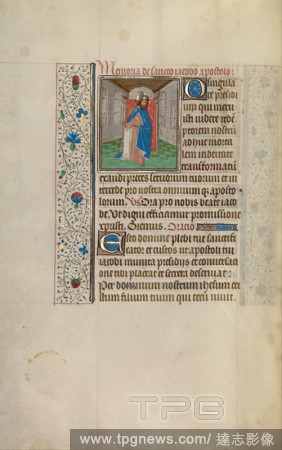 Memoria de sancto iacobo apostolo:
O singula
re presidi
um qui meru
isti videre rede
ptorem nostrū
adhuc morta
lem in deitate
transformatū
exaudi preces servorum tuorum et in
tercede pro nostra omnium
lorum. Vs Ora pro nobis beate iaco
be. Ut digni efficiamur promissione
xpristi. Oremus. Oratio
Esto domine plebi tue sanctifi
cator et custos ut apostoli tui
iacobi munita presidiis et conversaci
one tibi placeat et secura deserviat:
Per dominum nostrum ihesum crist
um filium tuum qui tecū vivit.
TPG
www.tpgnews.com/達志影像